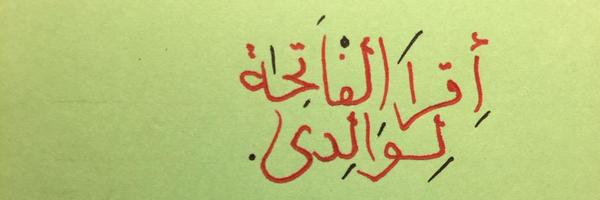 أقرأ الفاتحة
لوالدى